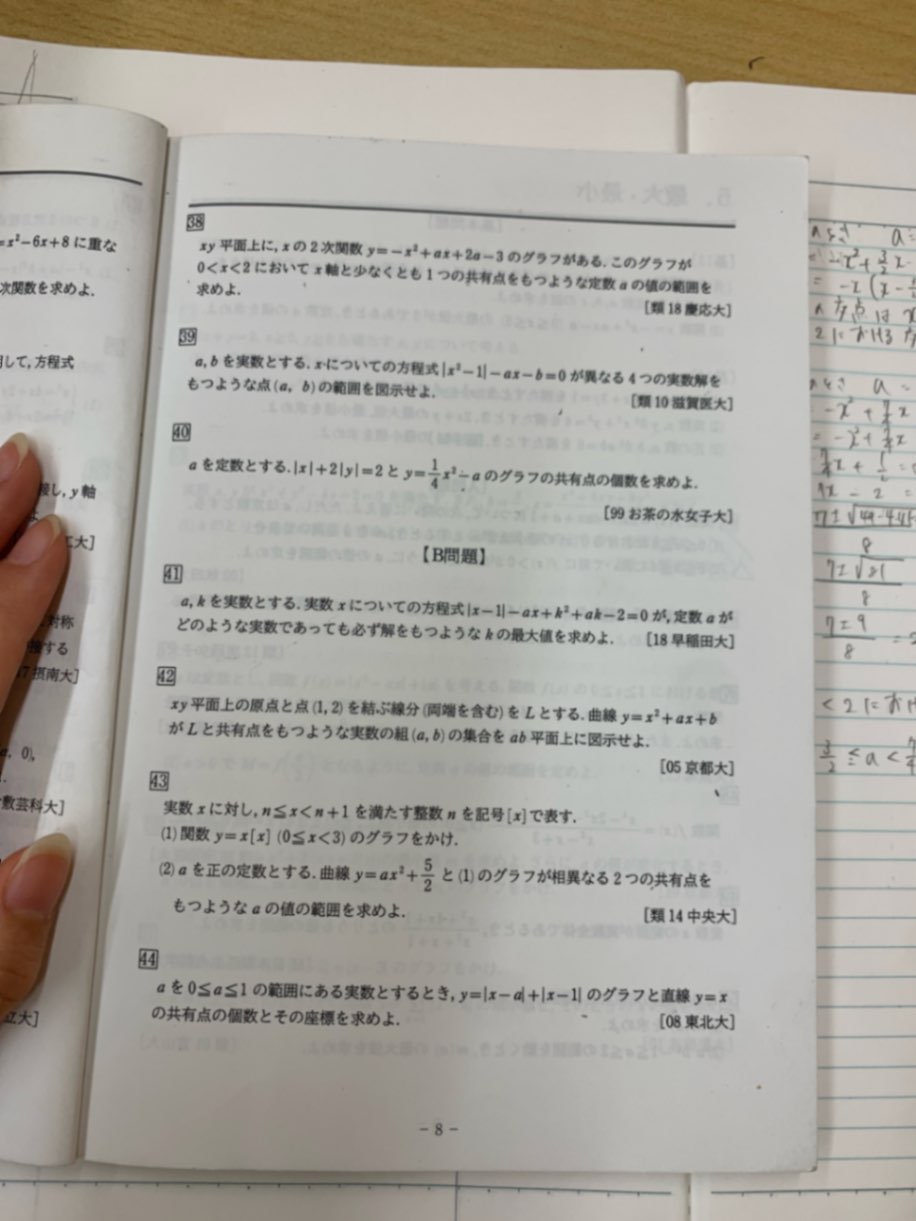 =x²-6x+8 に重な
次関数を求めよ.
して, 方程式
接し, y 軸
対称
接する
17 摂南大]
a, 0),
敷芸科大]
立大]
38
xy 平面上に, x の 2 次関数 y=-x²+ax+2a-3 のグラフがある. このグラフが
0<x<2 において x 軸と少なくとも 1 つの共有点をもつような定数 a の値の範囲を
求めよ. [類 18 慶応大]
39
a, b を実数とする. x についての方程式 |x²-1|-ax-b=0 が異なる 4 つの実数解を
もつような点 (a, b) の範囲を図示せよ. [類 10 滋賀医大]
40
a を定数とする. |x|+2|y|=2 と y=1/4 x²-a のグラフの共有点の個数を求めよ.
[99 お茶の水女子大]
【B問題】
41
a, k を実数とする. 実数 x についての方程式 |x-1|-ax+k²+ak-2=0 が, 定数 a が
どのような実数であっても必ず解をもつような k の最大値を求めよ. [18 早稲田大]
42
xy 平面上の原点と点 (1, 2) を結ぶ線分 (両端を含む) を L とする. 曲線 y=x²+ax+b
が L と共有点をもつような実数の組 (a, b) の集合を ab 平面上に図示せよ.
[05 京都大]
43
実数 x に対し, n≦x<n+1 を満たす整数 n を記号 [x] で表す.
(1) 関数 y=x[x] (0≦x<3) のグラフをかけ.
(2) a を正の定数とする. 曲線 y=ax²+5/2 と (1) のグラフが相異なる 2 つの共有点を
もつような a の値の範囲を求めよ. [類 14 中央大]
44
a を 0≦a≦1 の範囲にある実数とするとき, y=|x-a|+|x-1| のグラフと直線 y=x
の共有点の個数とその座標を求めよ. [08 東北大]
- 8 -
a=
a =
= -x²+7/4x
8
7±√81
8
7±9
8
3/2 ≦ a <